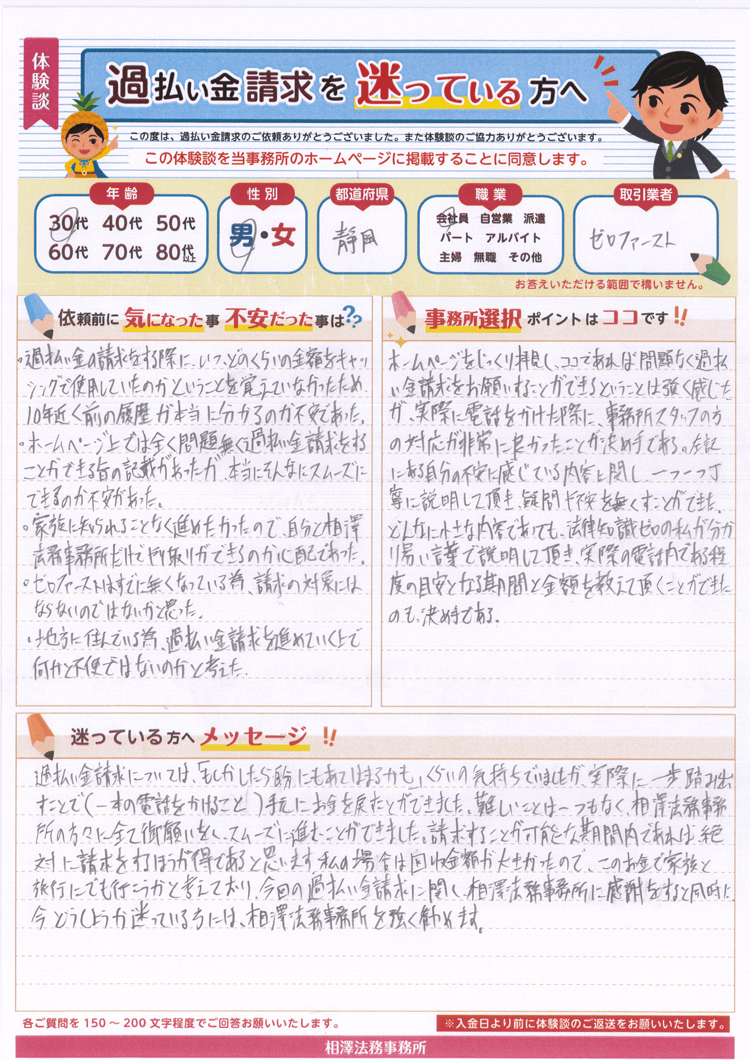 体験談
過払い金請求を迷っている方へ
この度は、過払い金請求のご依頼ありがとうございました。また体験談のご協力ありがとうございます。
この体験談を当事務所のホームページに掲載することに同意します。
年齢 性別 都道府県 職業 取引業者
30代 40代 50代
60代 70代 80代以上
男・女
静岡
会社員 自営業 派遣
パート アルバイト
主婦 無職 その他
ゼロファースト
お答えいただける範囲で構いません。
依頼前に気になった事 不安だった事は??
・過払い金の請求をする際に、いつ、どのくらいの金額をキャッ
シングで使用していたのかということを覚えていなかったため、
10年近く前の履歴が本当に分かるのか不安であった。
・ホームページ上では全く問題無く過払い金請求をする
ことができる旨の記載があったが、本当にそんなにスムーズに
できるのか不安があった。
・家族に知られることなく進めたかったので、自分と相澤
法務事務所だけでやり取りができるのか心配であった。
・ゼロファーストはすでに無くなっている為、請求の対象には
ならないのではないかと思った。
・地方に住んでいる為、過払い金請求を進めていく上で
何かと不便ではないのかと考えた。
事務所選択ポイントはココです!!
ホームページをじっくり拝見し、ココであれば問題なく過払
い金請求をお願いすることができるということは強く感じた
が、実際に電話をかけた際に、事務所スタッフの方
の対応が非常に良かったことが決め手である。左記
にある自分の不安に感じている内容に関し、一つ一つ丁
寧に説明して頂き、疑問や不安を無くすことができた。
どんなに小さな内容であっても、法律知識ゼロの私が分か
り易い言葉で説明して頂き、実際の電話内である程
度の目安となる期間と金額を教えて頂くことができた
のも、決め手である。
迷っている方へメッセージ!!
過払い金請求については、「もしかしたら自分にもあてはまるかも」くらいの気持ちでいましたが、実際に一歩踏み出
すことで(一本の電話をかけること)手元にお金を戻すことができました。難しいことは一つもなく、相澤法務事務
所の方々に全て御願いをし、スムーズに進むことができました。請求することが可能な期間内であれば、絶
対に請求をするほうが得であると思います。私の場合は回収金額が大きかったので、このお金で家族と
旅行にでも行こうかと考えており、今回の過払い金請求に関し、相澤法務事務所に感謝をすると同時に、
今どうしようか迷っている方には、相澤法務事務所を強く勧めます。
各ご質問を150～200文字程度でご回答お願いいたします。
※入金日より前に体験談のご返送をお願いいたします。
相澤法務事務所